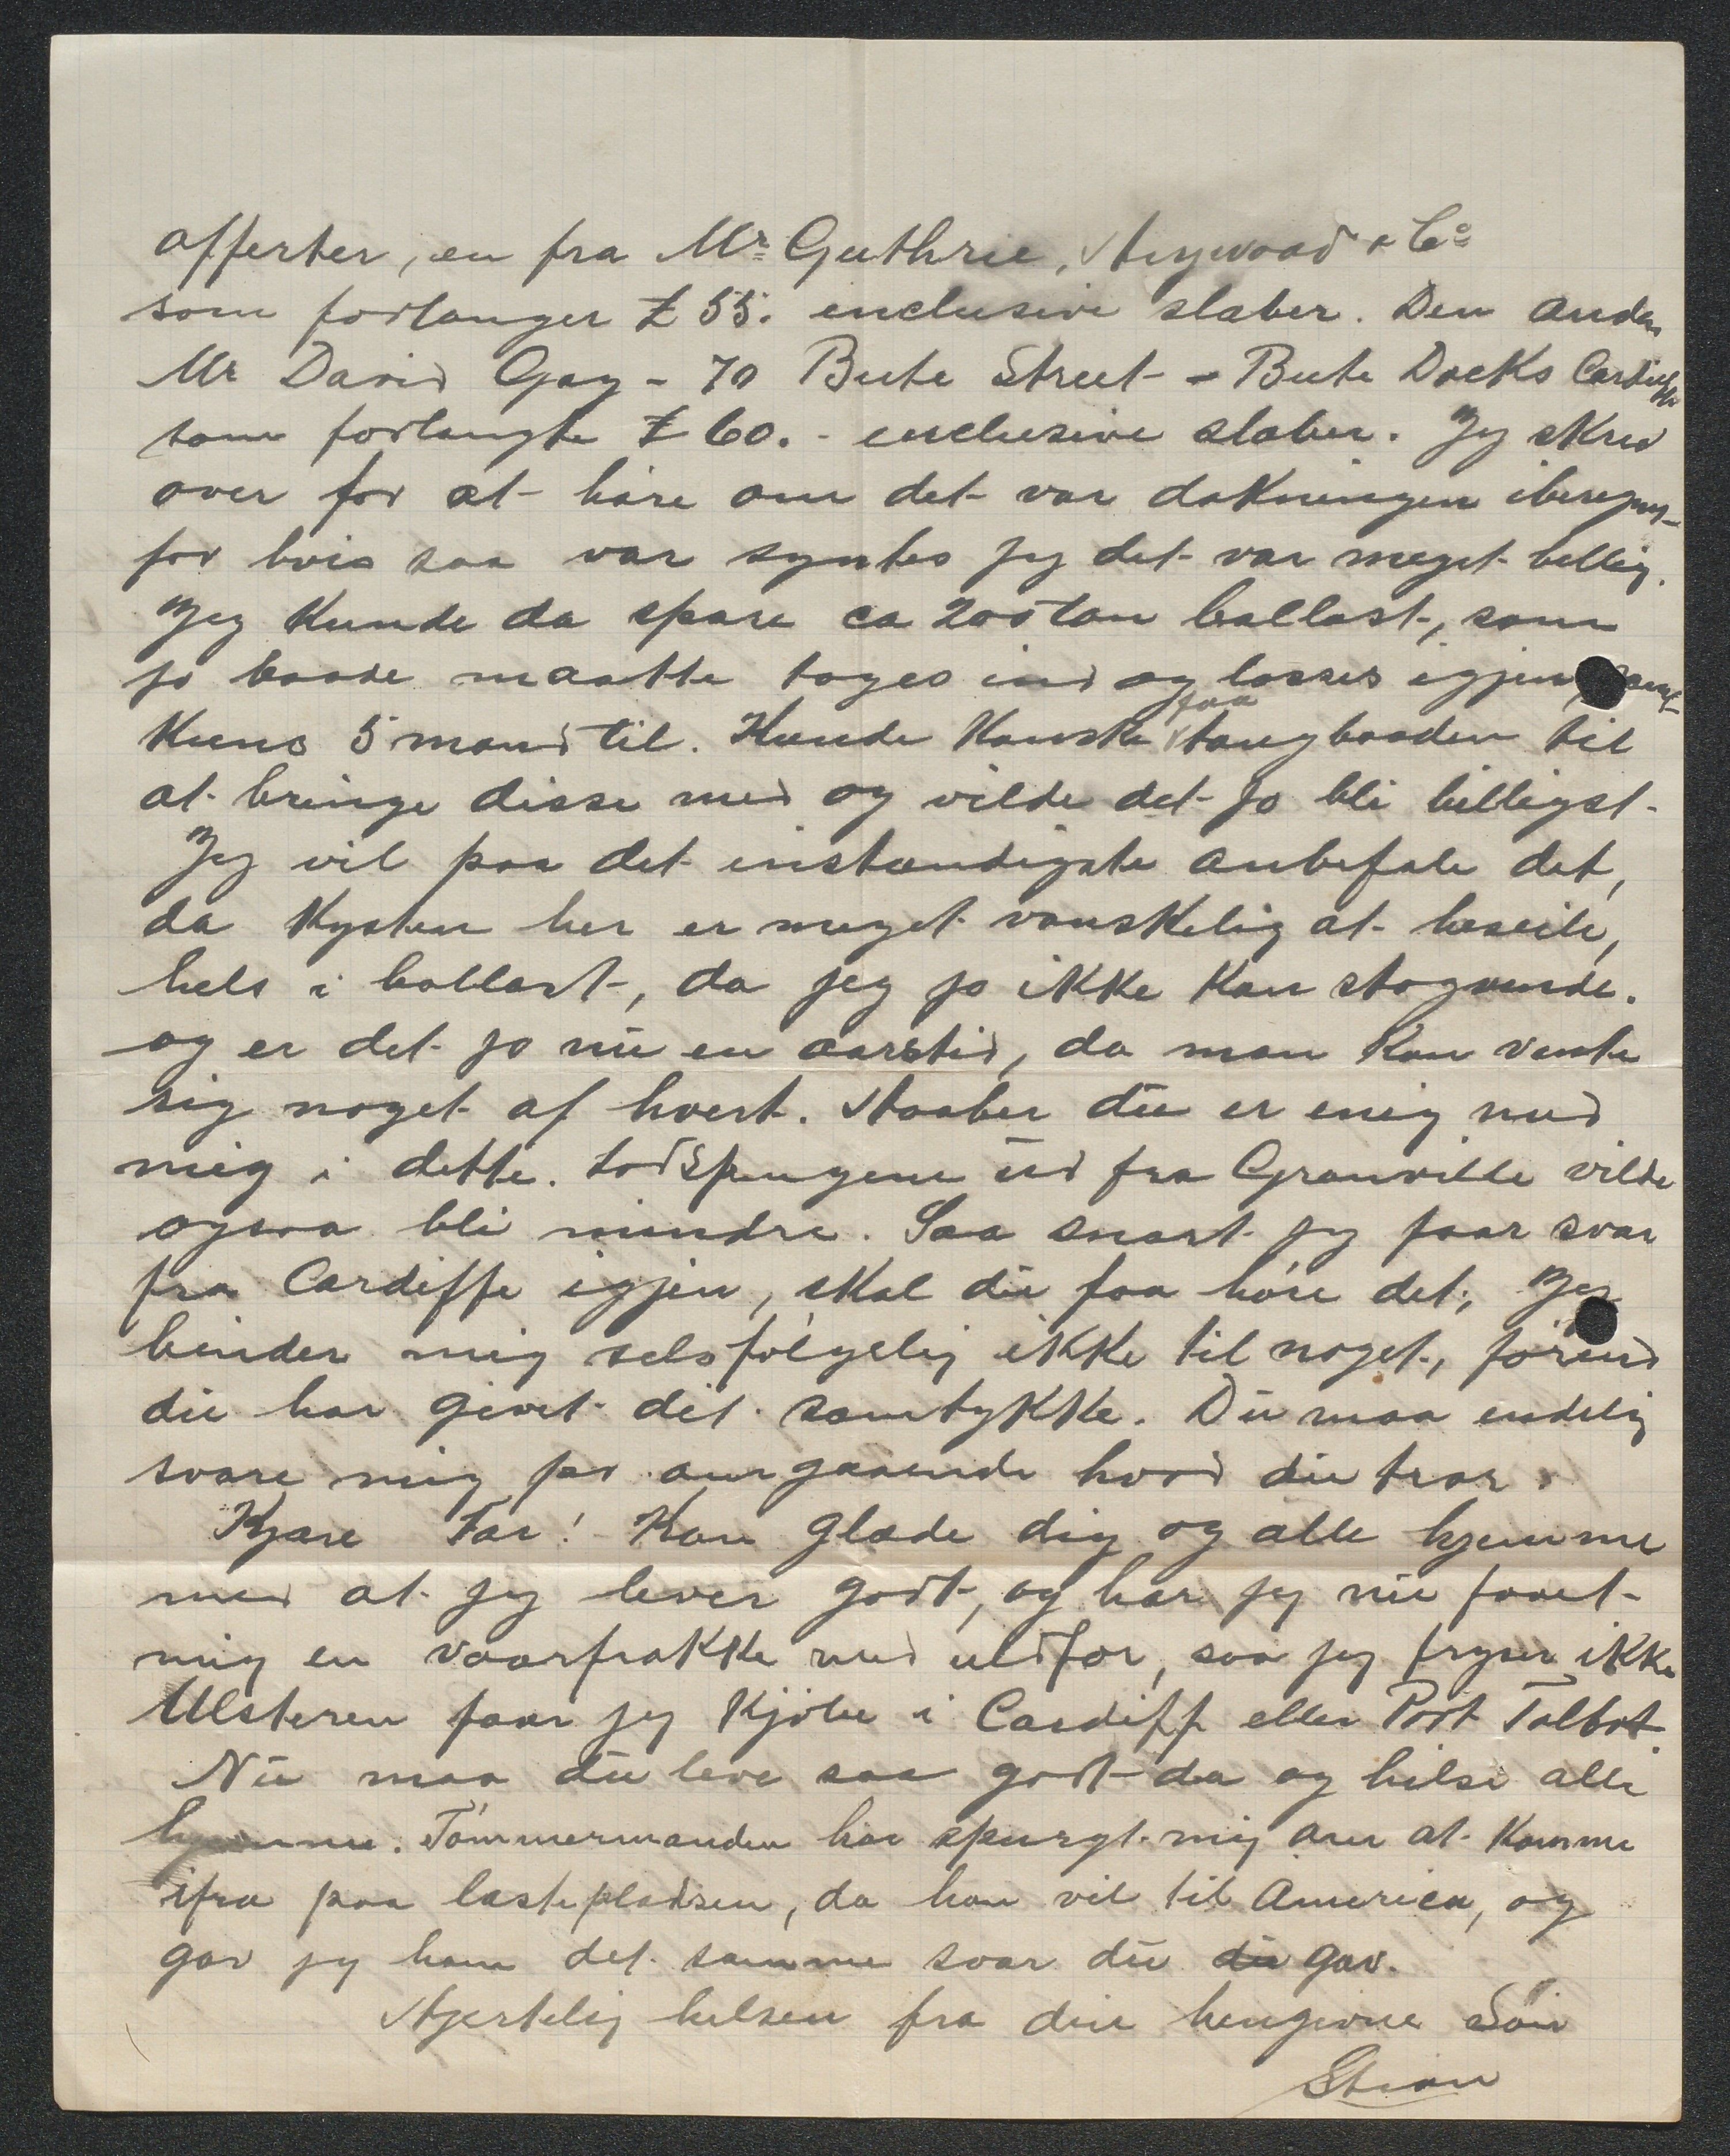 offerter, en fra Mr Guthrie, Heywood & Co
som forlanger £ 55. enclusive slæber. Den anden
Mr David Gay - 70 Bute Street - Bute Docks Cardiffe
som forlangte £ 60. - enclusive slæber. Jeg skrev
over for at høre om det var dokningen iberegnet
for hvis saa var syntes jeg det var meget billig.
Jeg kunde da spare ca 200 ton ballast, som
jo baade maatte tages ind og losses igjen, samt
kuns 5 mand til. Kunde kanske faa taugbaaden til
at bringe disse med og vilde det jo bli billigst.
Jeg vil paa det instændigste anbefale det,
da kysten her er meget vanskelig at beseile,
hels i ballast, da jeg jo ikke kan stagvende.
og er det jo nu en aarstid, da man kan vente
sig noget af hvert. Haaber du er enig med
mig i dette. Lodspengene ud fra Granville vilde
ogsaa bli mindre. Saa snart jeg faar svar
fra Cardiffe igjen, skal du faa høre det, Jeg
binder mig selvfølgelig ikke til noget, førend
du har givet dit samtykke. Du maa endelig
svare mig per omgaaende hvad du tror.
Kjære Far! Kan glæde dig og alle hjemme
med at jeg lever godt, og har jeg nu faaet
mig en vaarfrakke med uldfor, saa jeg fryser ikke
Ulsteren faar jeg kjøbe i Cardiff eller Port Talbot.
Nu maa du leve saa godt da og hilse alle
hjemme. Tømmermanden har spurgt mig om at komme
ifra paa lastepladsen, da han vil til America, og
gav jeg ham det samme svar du du gav.
Hjertelig hilsen fra din hengivne Søn
Stian